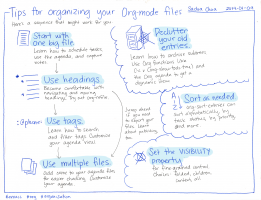 Tips for organizing your Org-mode files
Sacha Chua
Here's a sequence that might work for you
Start with
one big file.
Learn how to schedule tasks,
use the agenda, and capture
notes
Use headings.
Become comfortable with
navigating and moving
headings.
:@phone: Use tags.
Learn how to search
and filter tags. Customize
your agenda views.
Use multiple files.
Add some to your agenda files
for easier searching. Customize
your agenda.
Declutter
your old
entries.
Learn how to archive subtrees.
Use Org functions like
and the Org agenda to get a
dynamic view
Jump ahead
if you want
to export your
files. Learn about
publishing
too.
Sort as needed.
A
Z
org-sort-entries can
sort alphabetically, by
task status, by priority
and more
Set the VISIBILITY
property
for fine-grained control
Choices: folded, children,
content, all